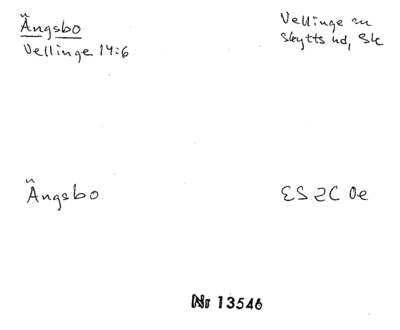 Ängsbo
Vellinge 14:6
Vellinge sn
Skytts hd, Sk
Ängsbo
ES2C 0e
Nr 13546